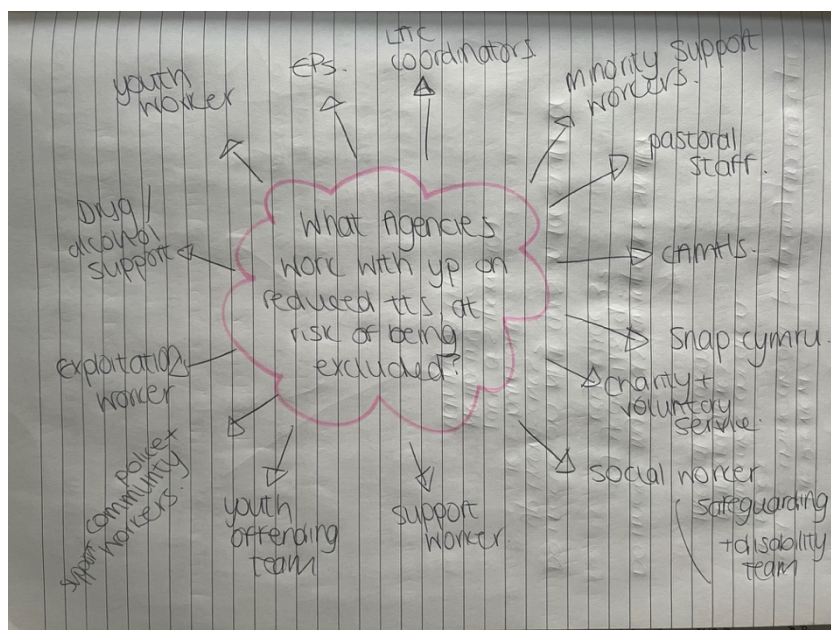 What Agencies
work with yp on
reduced tts, at
risk of being
excluded?
youth
worker
EPs.
coordinators
minority support
workers.
pastoral
staff.
CAMHs.
snap cymru.
charity +
voluntary
service.
social worker
safeguarding
+disability
team
support
worker
youth
offending
team
police +
community
support workers.
exploitation
worker
Drug/
alcohol
support